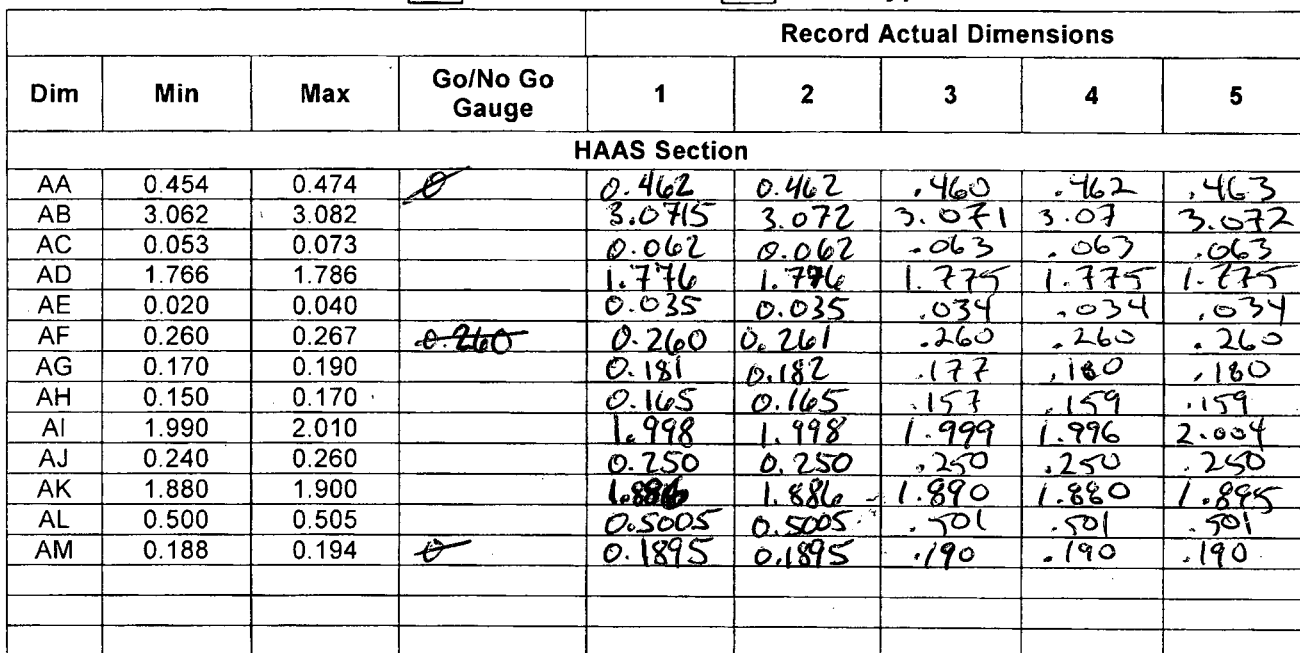 Record Actual Dimensions
Dim Min Max Go/No Go Gauge 1 2 3 4 5
HAAS Section
AA 0.454 0.474 0 0.462 0.462 .460 .462 .463
AB 3.062 3.082 3.0715 3.072 3.071 3.07 3.072
AC 0.053 0.073 0.062 0.062 .063 .063 .063
AD 1.766 1.786 1.776 1.776 1.775 1.775 1.775
AE 0.020 0.040 0.035 0.035 .034 .034 .034
AF 0.260 0.267 0.260 0.260 0.261 .260 .260 .260
AG 0.170 0.190 0.181 0.182 .177 .180 .180
AH 0.150 0.170 0.165 0.165 .157 .159 .159
AI 1.990 2.010 1.998 1.998 1.999 1.996 2.004
AJ 0.240 0.260 0.250 0.250 .250 .250 .250
AK 1.880 1.900 1.886 1.890 1.880 1.895
AL 0.500 0.505 0.5005 0.5005 .501 .501 .501
AM 0.188 0.194 0 0.1895 0.1895 .190 .190 .190